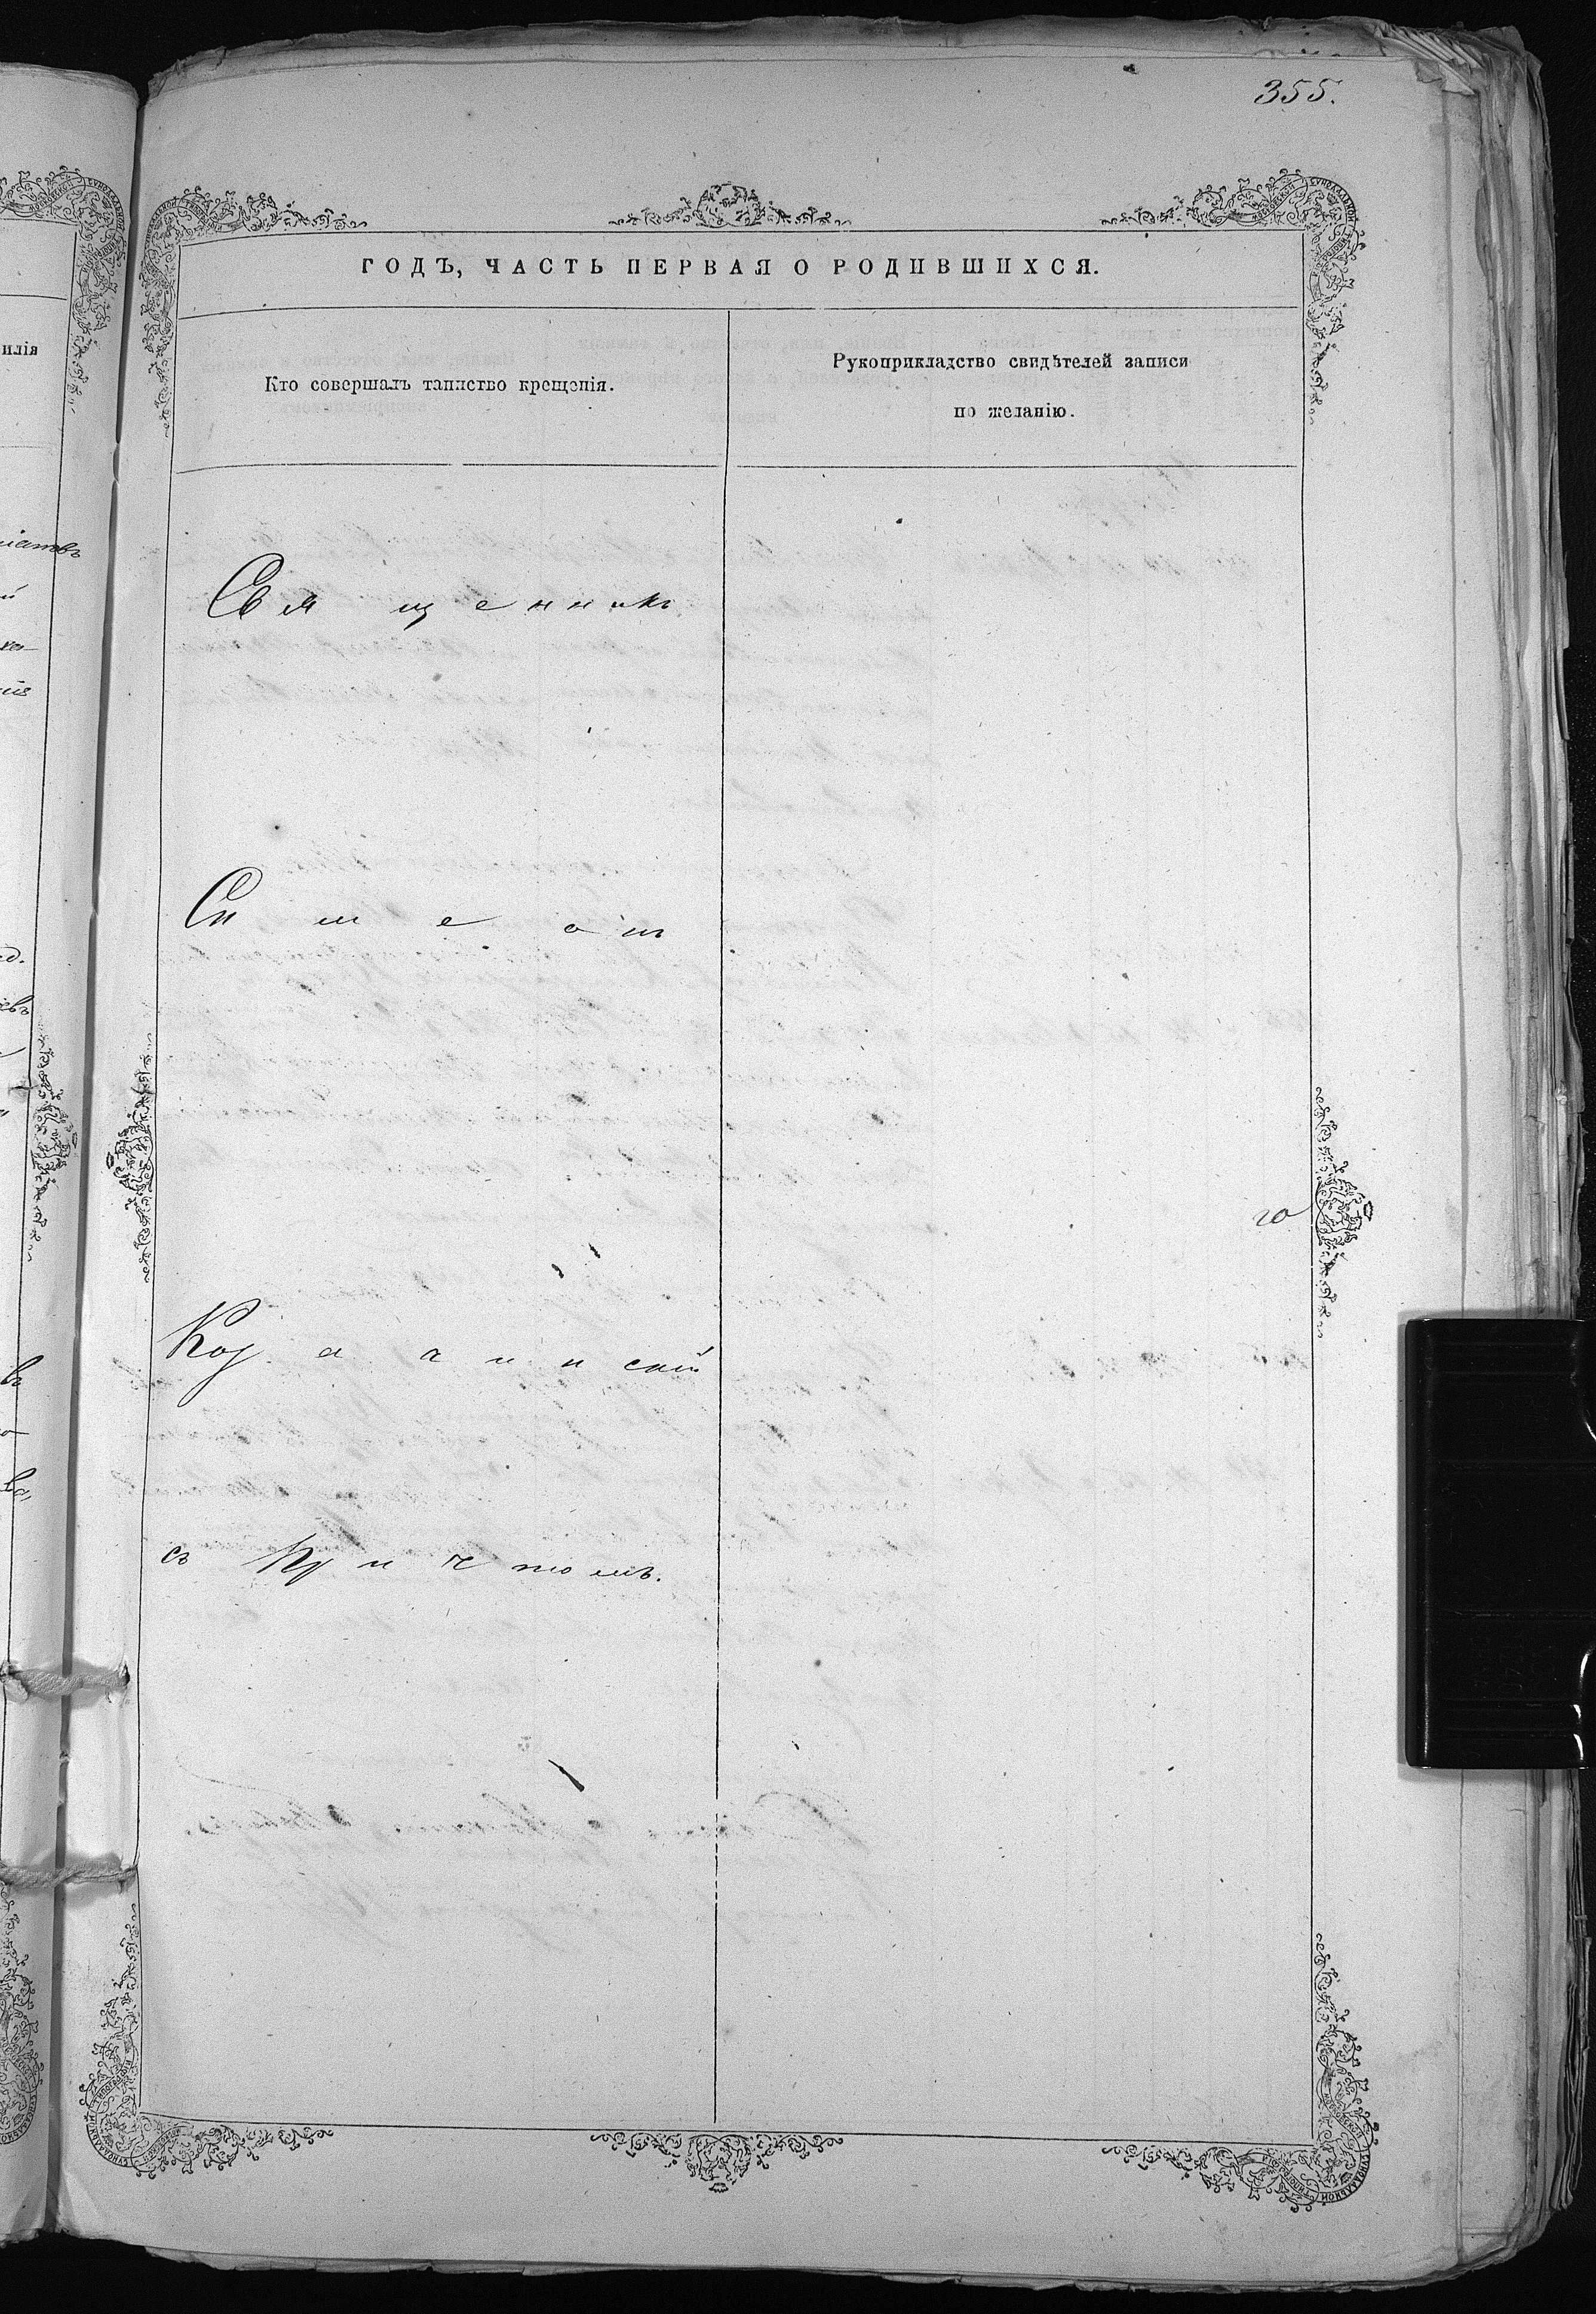 355.
ГОДЪ, ЧАСТЬ ПЕРВАЯ О РОДИВШИХСЯ.
Кто совершалъ таинство крещенія.
Рукоприкладство свидѣтелей записи
по желанію.
Священникъ
Симеонъ
съ Причтомъ.